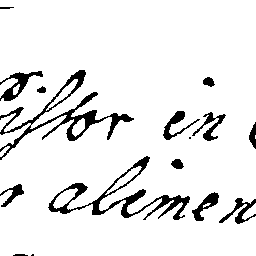 Pistor in
r alimen